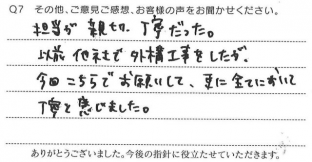 Q7 その他、ご意見ご感想、お客様の声をお聞かせください。
担当が親切、丁寧だった。
以前他社で外構工事をしたが、
今回こちらでお願いして、更に全てにおいて
丁寧と感じました。
ありがとうございました。今後の指針に役立たせていただきます。